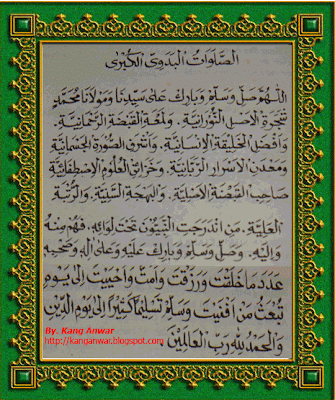 الصَّلَوَاتُ الْبَدَوِيّ الْكُبْرَى
اَللّٰهُمَّ صَلِّ وَسَلِّمْ وَبَارِكْ عَلَى سَيِّدِنَا وَمَوْلَانَا مُحَمَّدٍ
شَجَرَةِ الْاَصْلِ النُّوْرَانِيَّةِ. وَلَمْعَةِ الْقَبْضَةِ الرَّحْمَانِيَّةِ.
وَاَفْضَلِ الْخَلِيْقَةِ الْاِنْسَانِيَّةِ. وَاَشْرَفِ الصُّوْرَةِ الْجِسْمَانِيَّةِ
وَمَعْدِنِ الْاَسْرَارِ الرَّبَّانِيَّةِ. وَخَزَائِنِ الْعُلُوْمِ الْاِصْطِفَائِيَّةِ
صَاحِبِ الْقَبْضَةِ الْاَصْلِيَّةِ. وَالْبَهْجَةِ السَّنِيَّةِ. وَالرُّتْبَةِ
الْعَلِيَّةِ. مَنِ انْدَرَجَتِ النَّبِيُّوْنَ تَحْتَ لِوَائِهِ. فَهُمْ مِنْهُ
وَاِلَيْهِ. وَصَلِّ وَسَلِّمْ وَبَارِكْ عَلَيْهِ وَعَلَى اٰلِهِ وَصَحْبِهِ
عَدَدَ مَاخَلَقْتَ وَرَزَقْتَ وَاَمَتَّ وَاَحْيَيْتَ اِلَى يَوْمِ
تَبْعَثُ مَنْ اَفْنَيْتَ وَسَلِّمْ تَسْلِيْمًا كَثِيْرًا اِلَى يَوْمِ الدِّيْنِ
وَالْحَمْدُ لِلّٰهِ رَبِّ الْعَالَمِيْنَ
By. Kang Anwar
http://kanganwar.blogspot.com